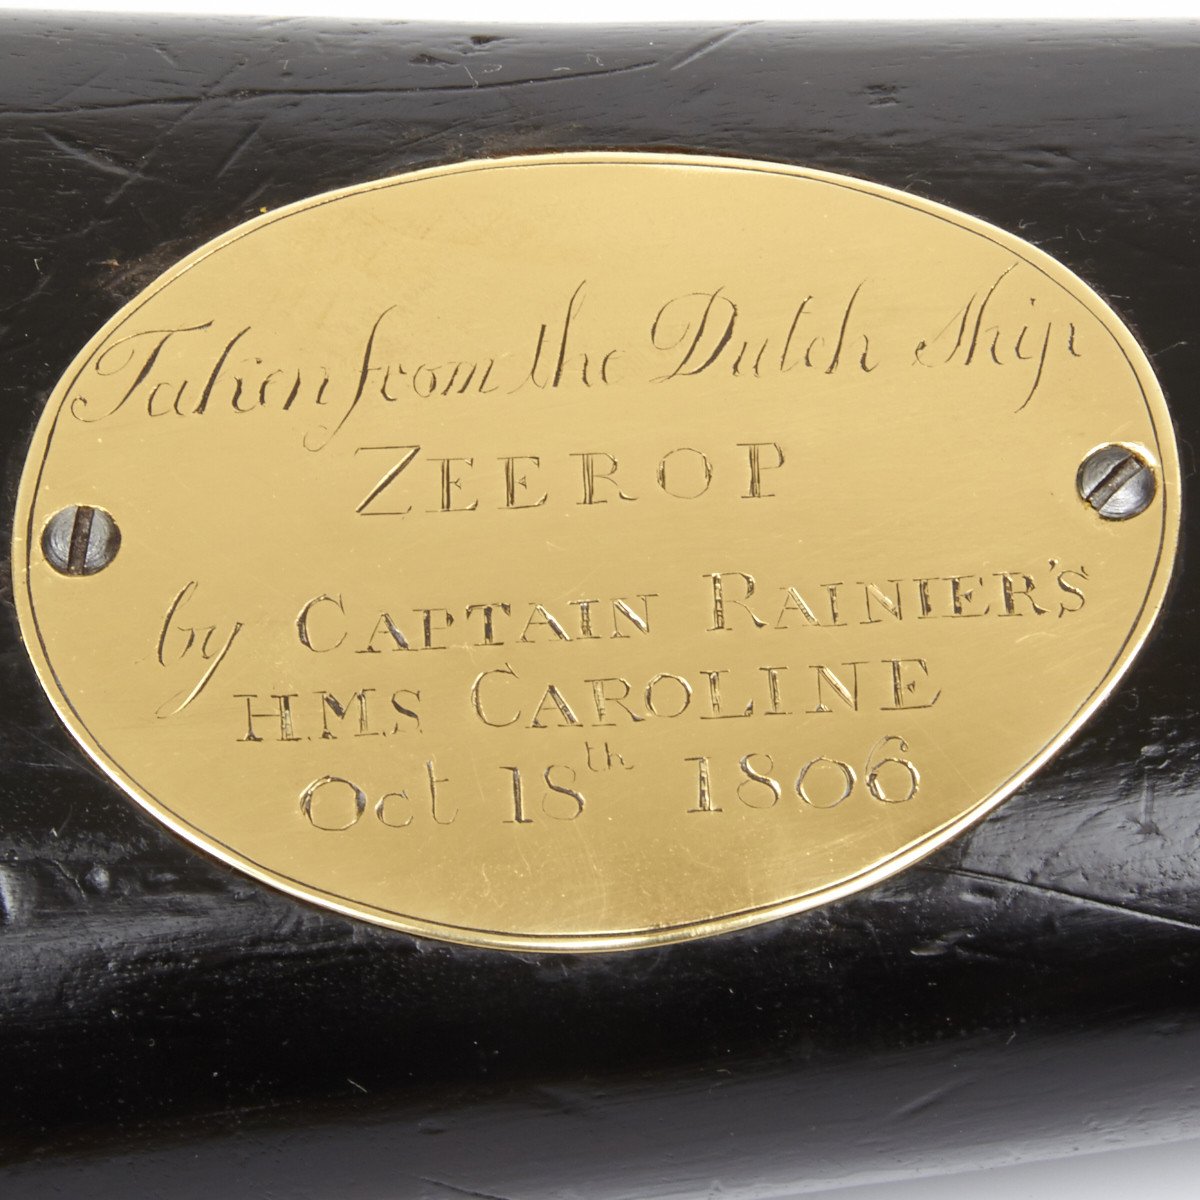 Taken from the Dutch Ship
ZEEROP
by CAPTAIN RAINIER'S
H.M.S CAROLINE
Oct 18th 1806